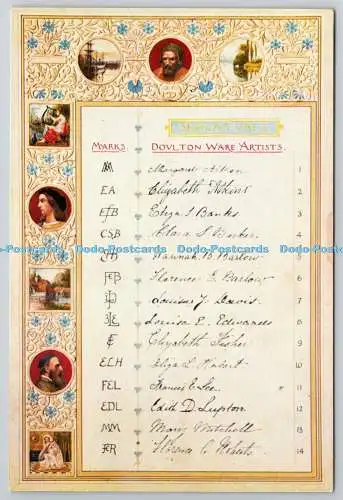 MARKS DOULTON WARE ARTISTS.
Margaret Aitken 1
EA Elizabeth Atkins 2
EfB Eliza S. Banks 3
CSB Clara S Barker 4
Hannah B Barlow 5
FEB Florence E Barlow 6
Louisa J Davis 7
Louisa E. Edwards 8
Elizabeth Fisher 9
ELH Eliza L Hubert 10
FEL Frances E. Lee " 11
EDL Edith D Lupton 12
MM Mary Mitchell 13
Florence C Roberts 14
Dodo-Postcards Dodo-Postcards Dodo-Postcards